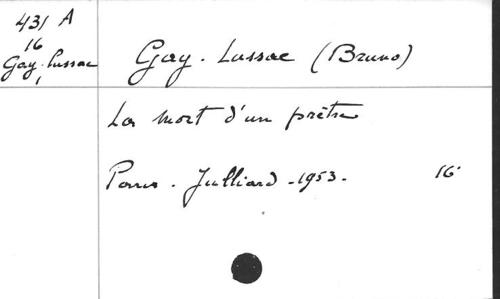 431 A
16
Gay. Lussac
Gay. Lussac (Bruno)
La mort d'un prêtre
Paris. Julliard - 1953.
16°